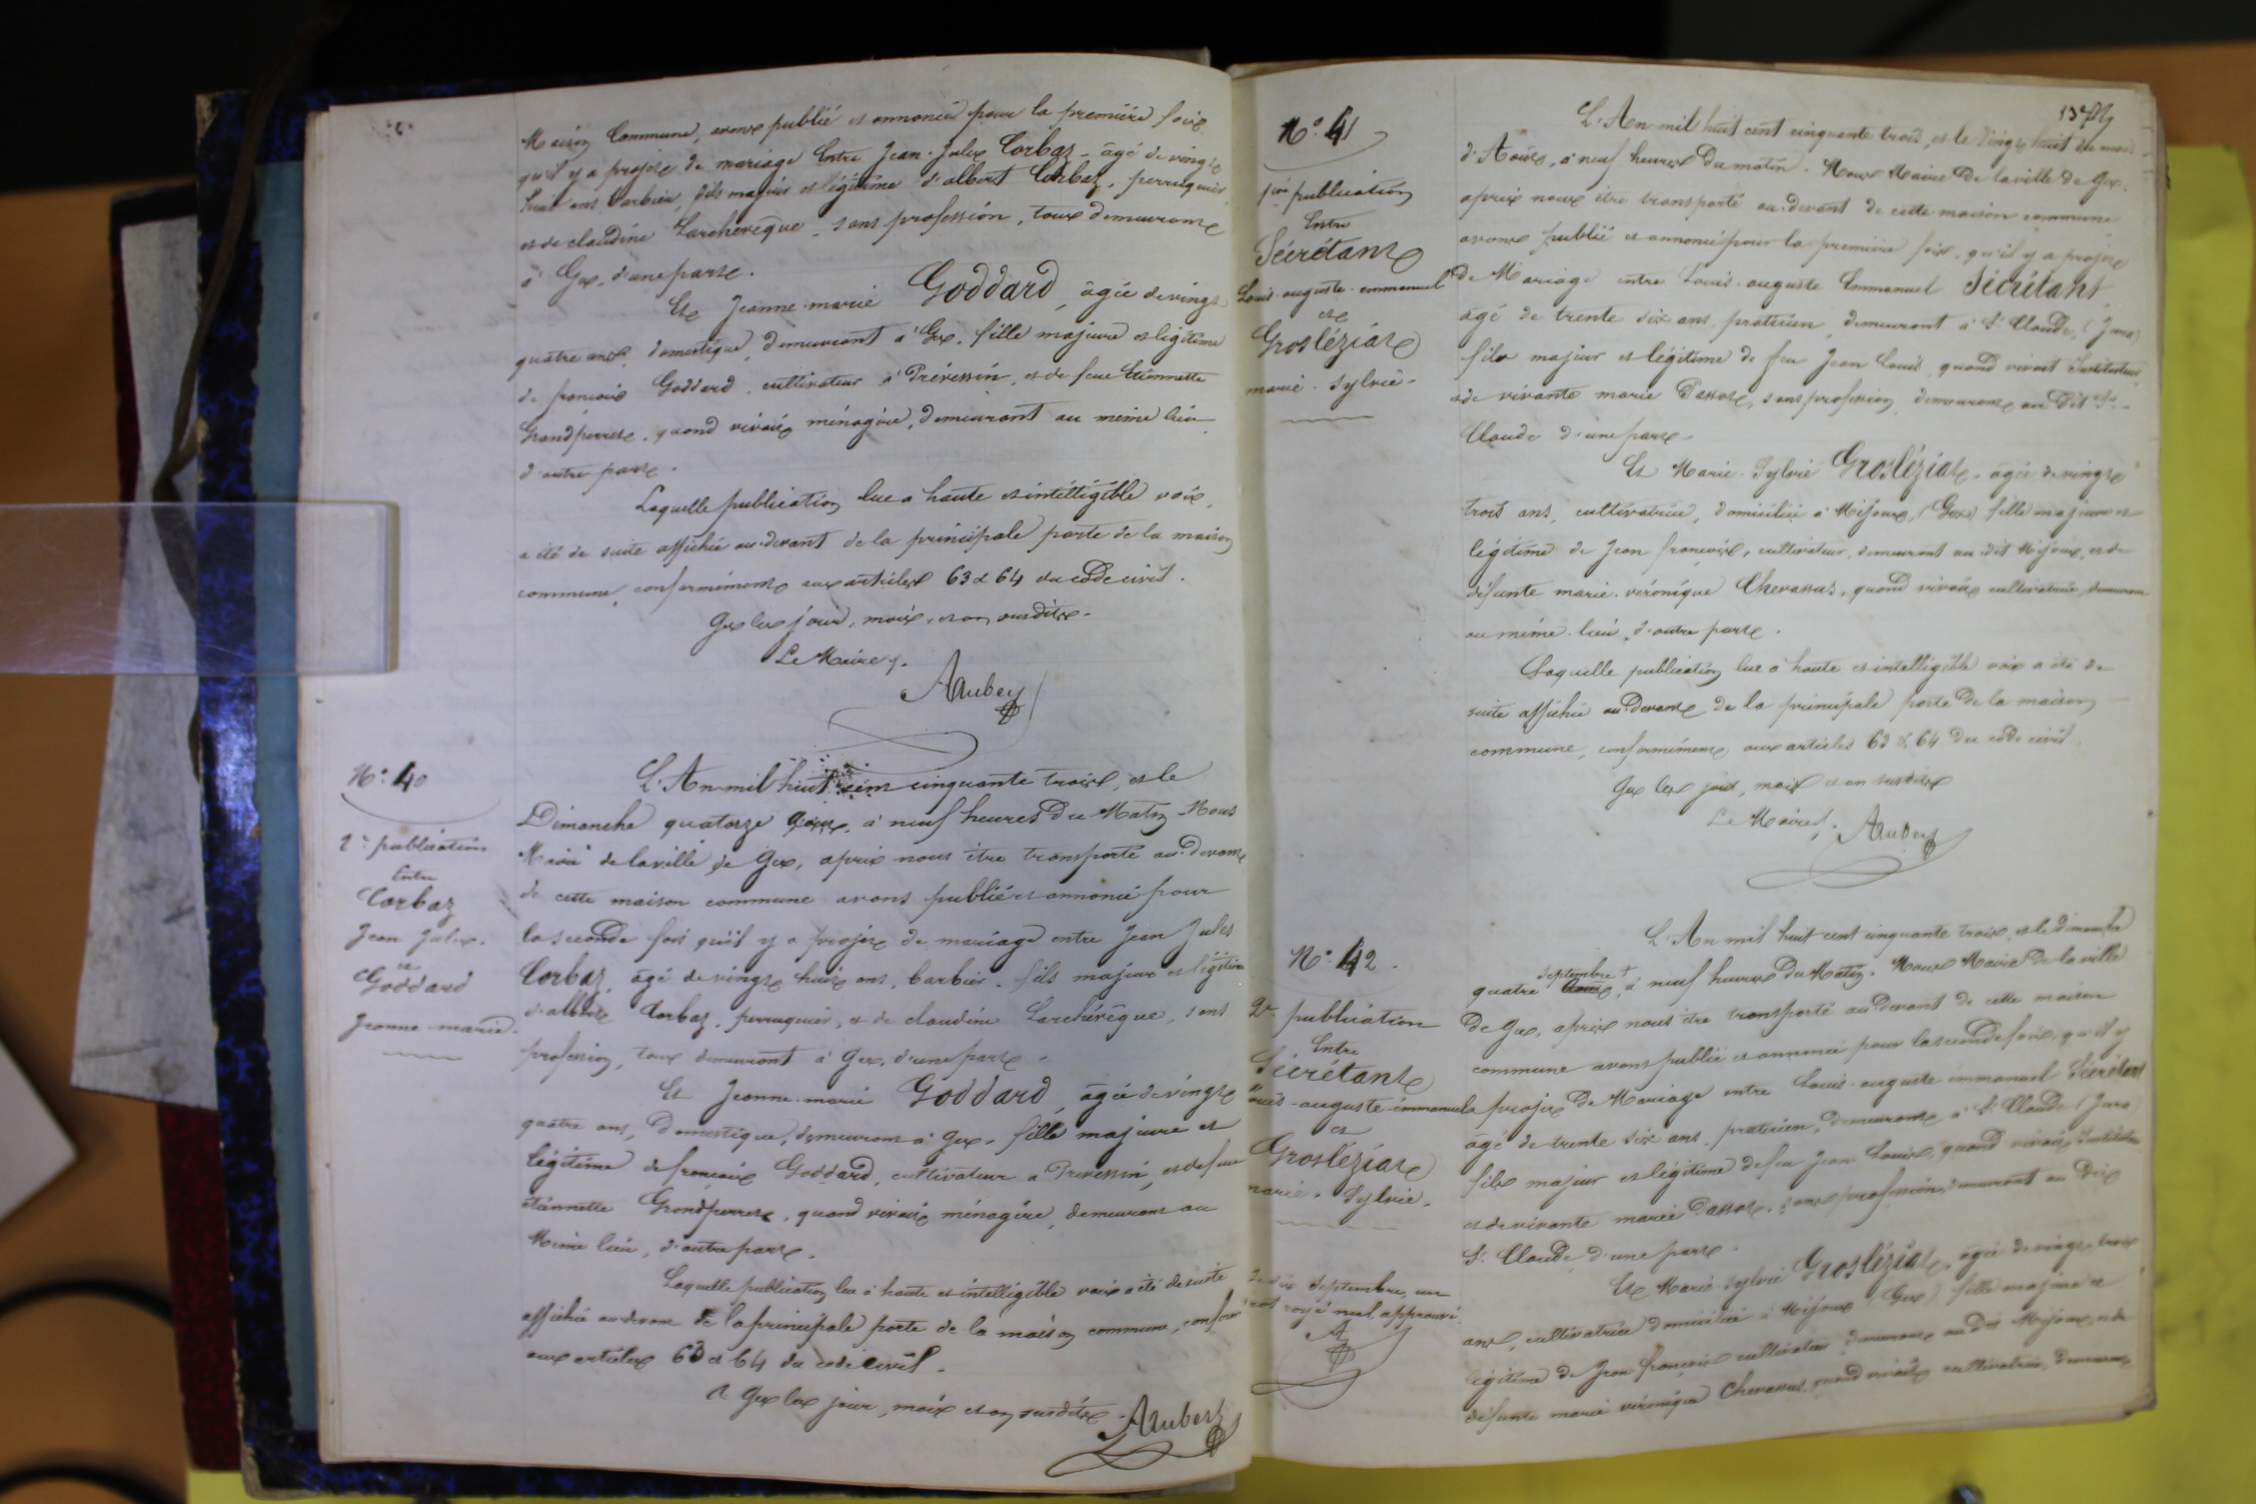 Maison Commune, avons publié et annoncé pour la première fois
qu'il y a projet de mariage Entre Jean-Jules Corbaz, âgé de vingt
huit ans, barbier, fils majeur et légitime d'albert Corbaz, perruquier
et de claudine Larchevêque, sans profession, tous demeurant
à Gex, d'une part.
Et Jeanne-marie Goddard, âgée de vingt
quatre ans, domestique, demeurant à Gex, fille majeure et légitime
de françois Goddard, cultivateur à Prévessin, et de feue Etiennette
Grandperret, quand vivait ménagère, demeurant au même lieu
d'autre part.
Laquelle publication lue a haute et intélligible voix,
a été de suite affichée au-devant de la principale porte de la maison
commune, conformément aux articles 63 & 64 du code civil.
Gex les jour, mois, et an susdits.
Le Maire
Aubery
N° 40
2e publication
Entre
Corbaz
Jean Jules.
et
Goddard
Jeanne-marie.
L'An mil huit cent cinquante trois, et le
Dimanche quatorze août, à neuf heures du Matin Nous
Maire de la ville de Gex, après nous être transporté au-devant
de cette maison commune avons publié et annoncé pour
la seconde fois qu'il y a projet de mariage entre Jean Jules
Corbaz, âgé de vingt huit ans, barbier, fils majeur et légitime
d'albert Corbaz, perruquier, et de claudine Larchevêque, sans
profession, tous demeurant à Gex, d'une part.
Et Jeanne-marie Goddard, âgée de vingt
quatre ans, Domestique, demeurant à Gex, fille majeure et
légitime de françois Goddard, cultivateur a Prevessin, et de feue
étiennette Grandperret, quand vivait ménagère, demeurant au
Même lieu, d'autre part.
Laquelle publication lue à haute et intelligible voix a été de suite
affichée au-devant de la principale porte de la maison commune, conform
aux articles 63 et 64 du code civil.
A Gex les jour, mois et an susdits
Aubery
N° 41
1ère publication
Entre
Sécrétant
Louis-auguste-emmanuel
et
Grosléziat
marie-Sylvie.
L'An mil huit cent cinquante trois, et le Vingt huit du mois
d'Août, à neuf heures du matin. Nous Maire de la ville de Gex.
après nous être transporté au-devant de cette maison commune
avons publié et annoncé pour la première fois, qu'il y a projet
de Mariage entre Louis-auguste Emmanuel Sécrétant
âgé de trente six ans, praticien, demeurant à St Claude, (Jura)
fils majeur et légitime de feu Jean Louis, quand vivait Instituteur
et de vivante marie sans profession, demeurant au Dit St
Claude d'une part.
Et Marie-Sylvie Grosléziat, âgée de vingt
trois ans, cultivatrice, domiciliée à Mijoux, (Gex) fille majeure et
légitime de Jean françois, cultivateur, demeurant au dit Mijoux, et de
défunte marie-véronique Chevassus, quand vivait cultivatrice, demeurant
au même lieu, d'autre part.
Laquelle publication lue à haute et intelligible voix a été de
suite affichée au-devant de la principale porte de la maison
commune, conformément aux articles 63 & 64 du code civil.
Gex les jour, mois et an susdits
Le Maire
Aubery
N° 42.
2e publication
Entre
Sécrétant
Louis-auguste-émmanuel
et
Grosléziat
marie-Sylvie.
septembre, un
mot rayé nul approuvé
L'An mil huit cent cinquante trois, et le dimanche
septembre +
quatre août, à neuf heures du Matin. Nous Maire de la ville
de Gex, après nous être transporté au-devant de cette maison
commune avons publié et annoncé pour la seconde fois, qu'il y
a projet de Mariage entre Louis-auguste émmanuel Sécrétant
âgé de trente six ans, praticien, demeurant à St Claude (Jura)
fils majeur et légitime de feu Jean Louis, quand vivait Instituteur
et de vivante marie sans profession, demeurant au Dit
St Claude d'une part.
Et Marie-Sylvie Grosléziat, âgée de vingt-trois
ans, cultivatrice domiciliée à Mijoux (Gex) fille majeure et
légitime de Jean françois cultivateur, demeurant au Dit Mijoux, et de
défunte marie véronique Chevassus, quand vivait cultivatrice, demeurant